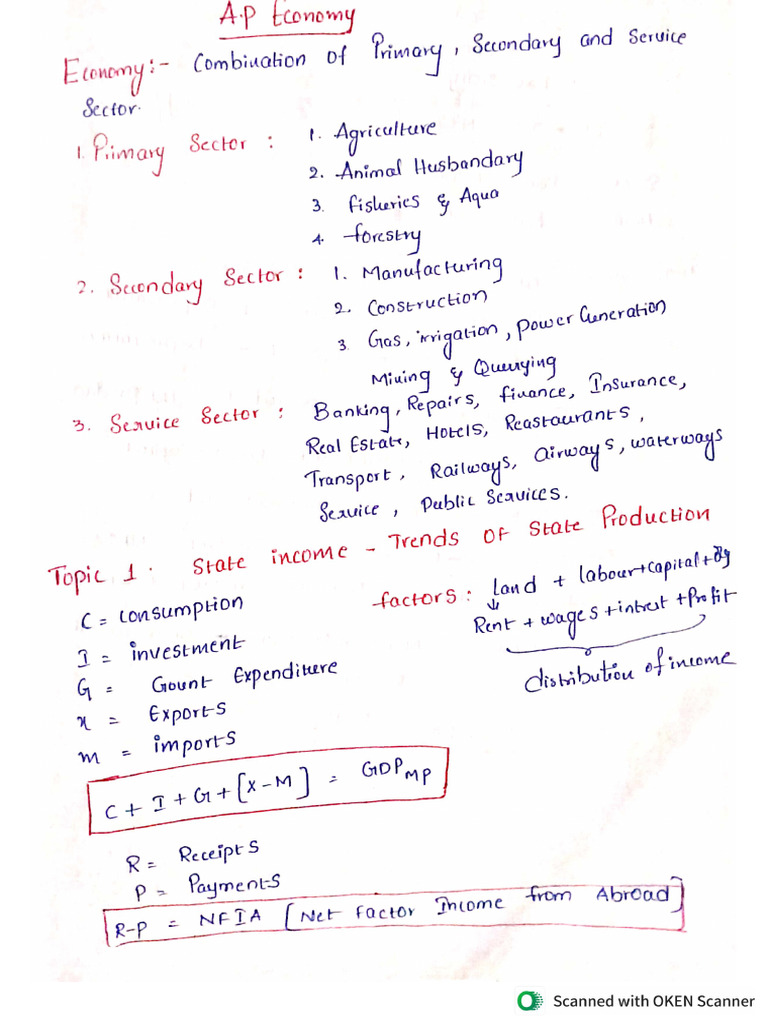 A.P Economy
Economy:- Combination of Primary, Secondary and Service
Sector.
1. Primary Sector : 1. Agriculture
2. Animal Husbandary
3. fisheries & Aqua
4. forestry
2. Secondary Sector : 1. Manufacturing
2. Construction
3. Gas, irrigation, power Generation
Mining & Querrying
3. Service Sector : Banking, Repairs, finance, Insurance,
Real Estate, Hotels, Reastaurants,
Transport, Railways, Airways, waterways
Service, Public Services.
Topic 1: State income - Trends of State Production
C = consumption
I = investment
G = Gount Expenditure
x = Exports
m = imports
factors: land + labour+capital+
↓
Rent + wages + intrest + Profit
distribution of income
C + I + G + [X-M] = GDP MP
R = Receipts
P = Payments
R-P = NFIA [Net factor Income from Abroad]
Scanned with OKEN Scanner